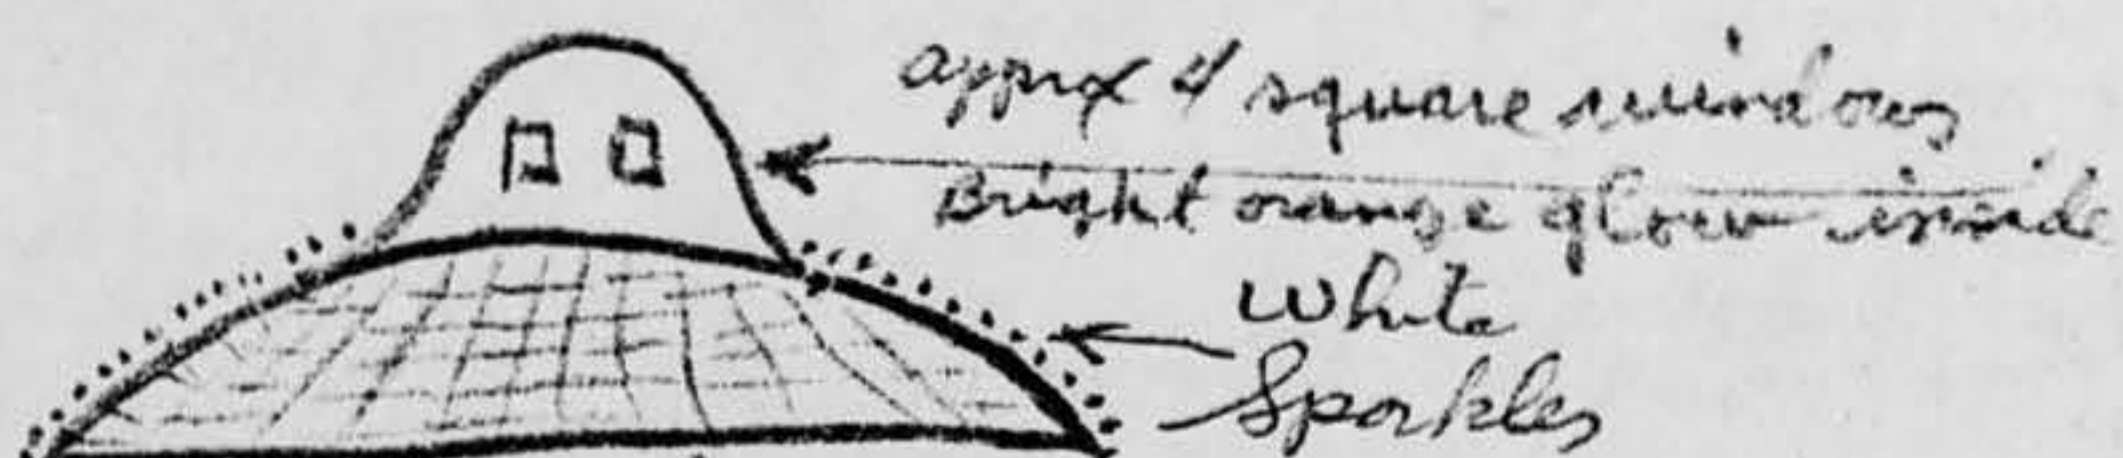 apprx 4 square windows
Bright orange glow inside
White
Sparkles